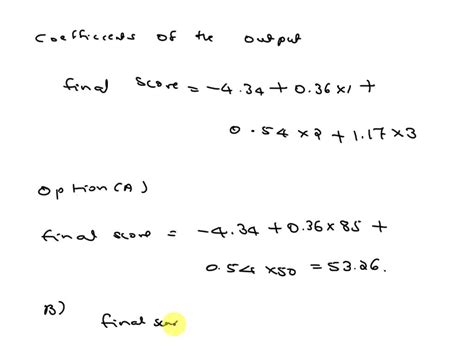 Coefficients of the output
final score = -4.34 + 0.36x1 +
0.54x2 + 1.17x3
Option (A)
final score = -4.34 + 0.36 x 85 +
0.54 x 50 = 53.26.
B)
final